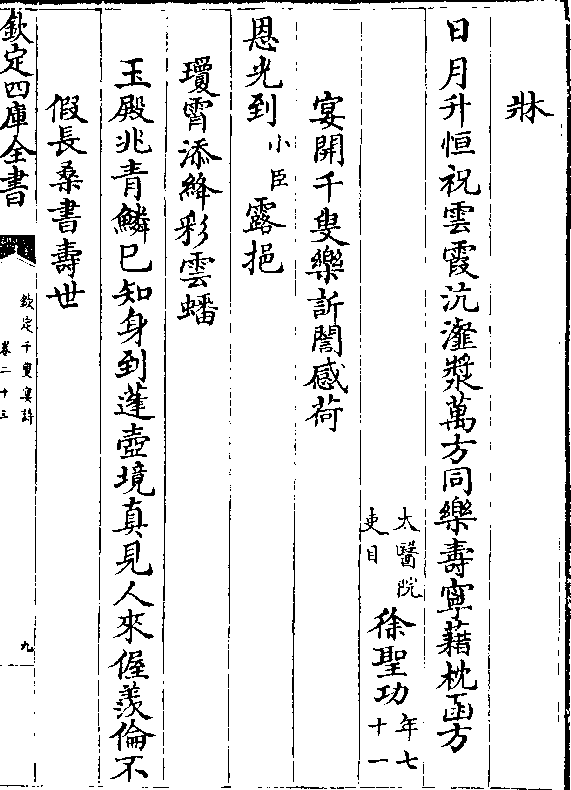 牀
日月升恒祝雲霞沆瀣漿萬方同樂壽寧藉枕函方
太醫院吏目徐聖功年七十一
宴開千叟樂訢誾感荷
恩光到小臣露挹
瓊霄添絳彩雲蟠
玉殿兆青鱗已知身到蓬壺境真見人來偓羨倫不
假長桑書壽世
欽定四庫全書
欽定千叟宴詩
卷二十三
九